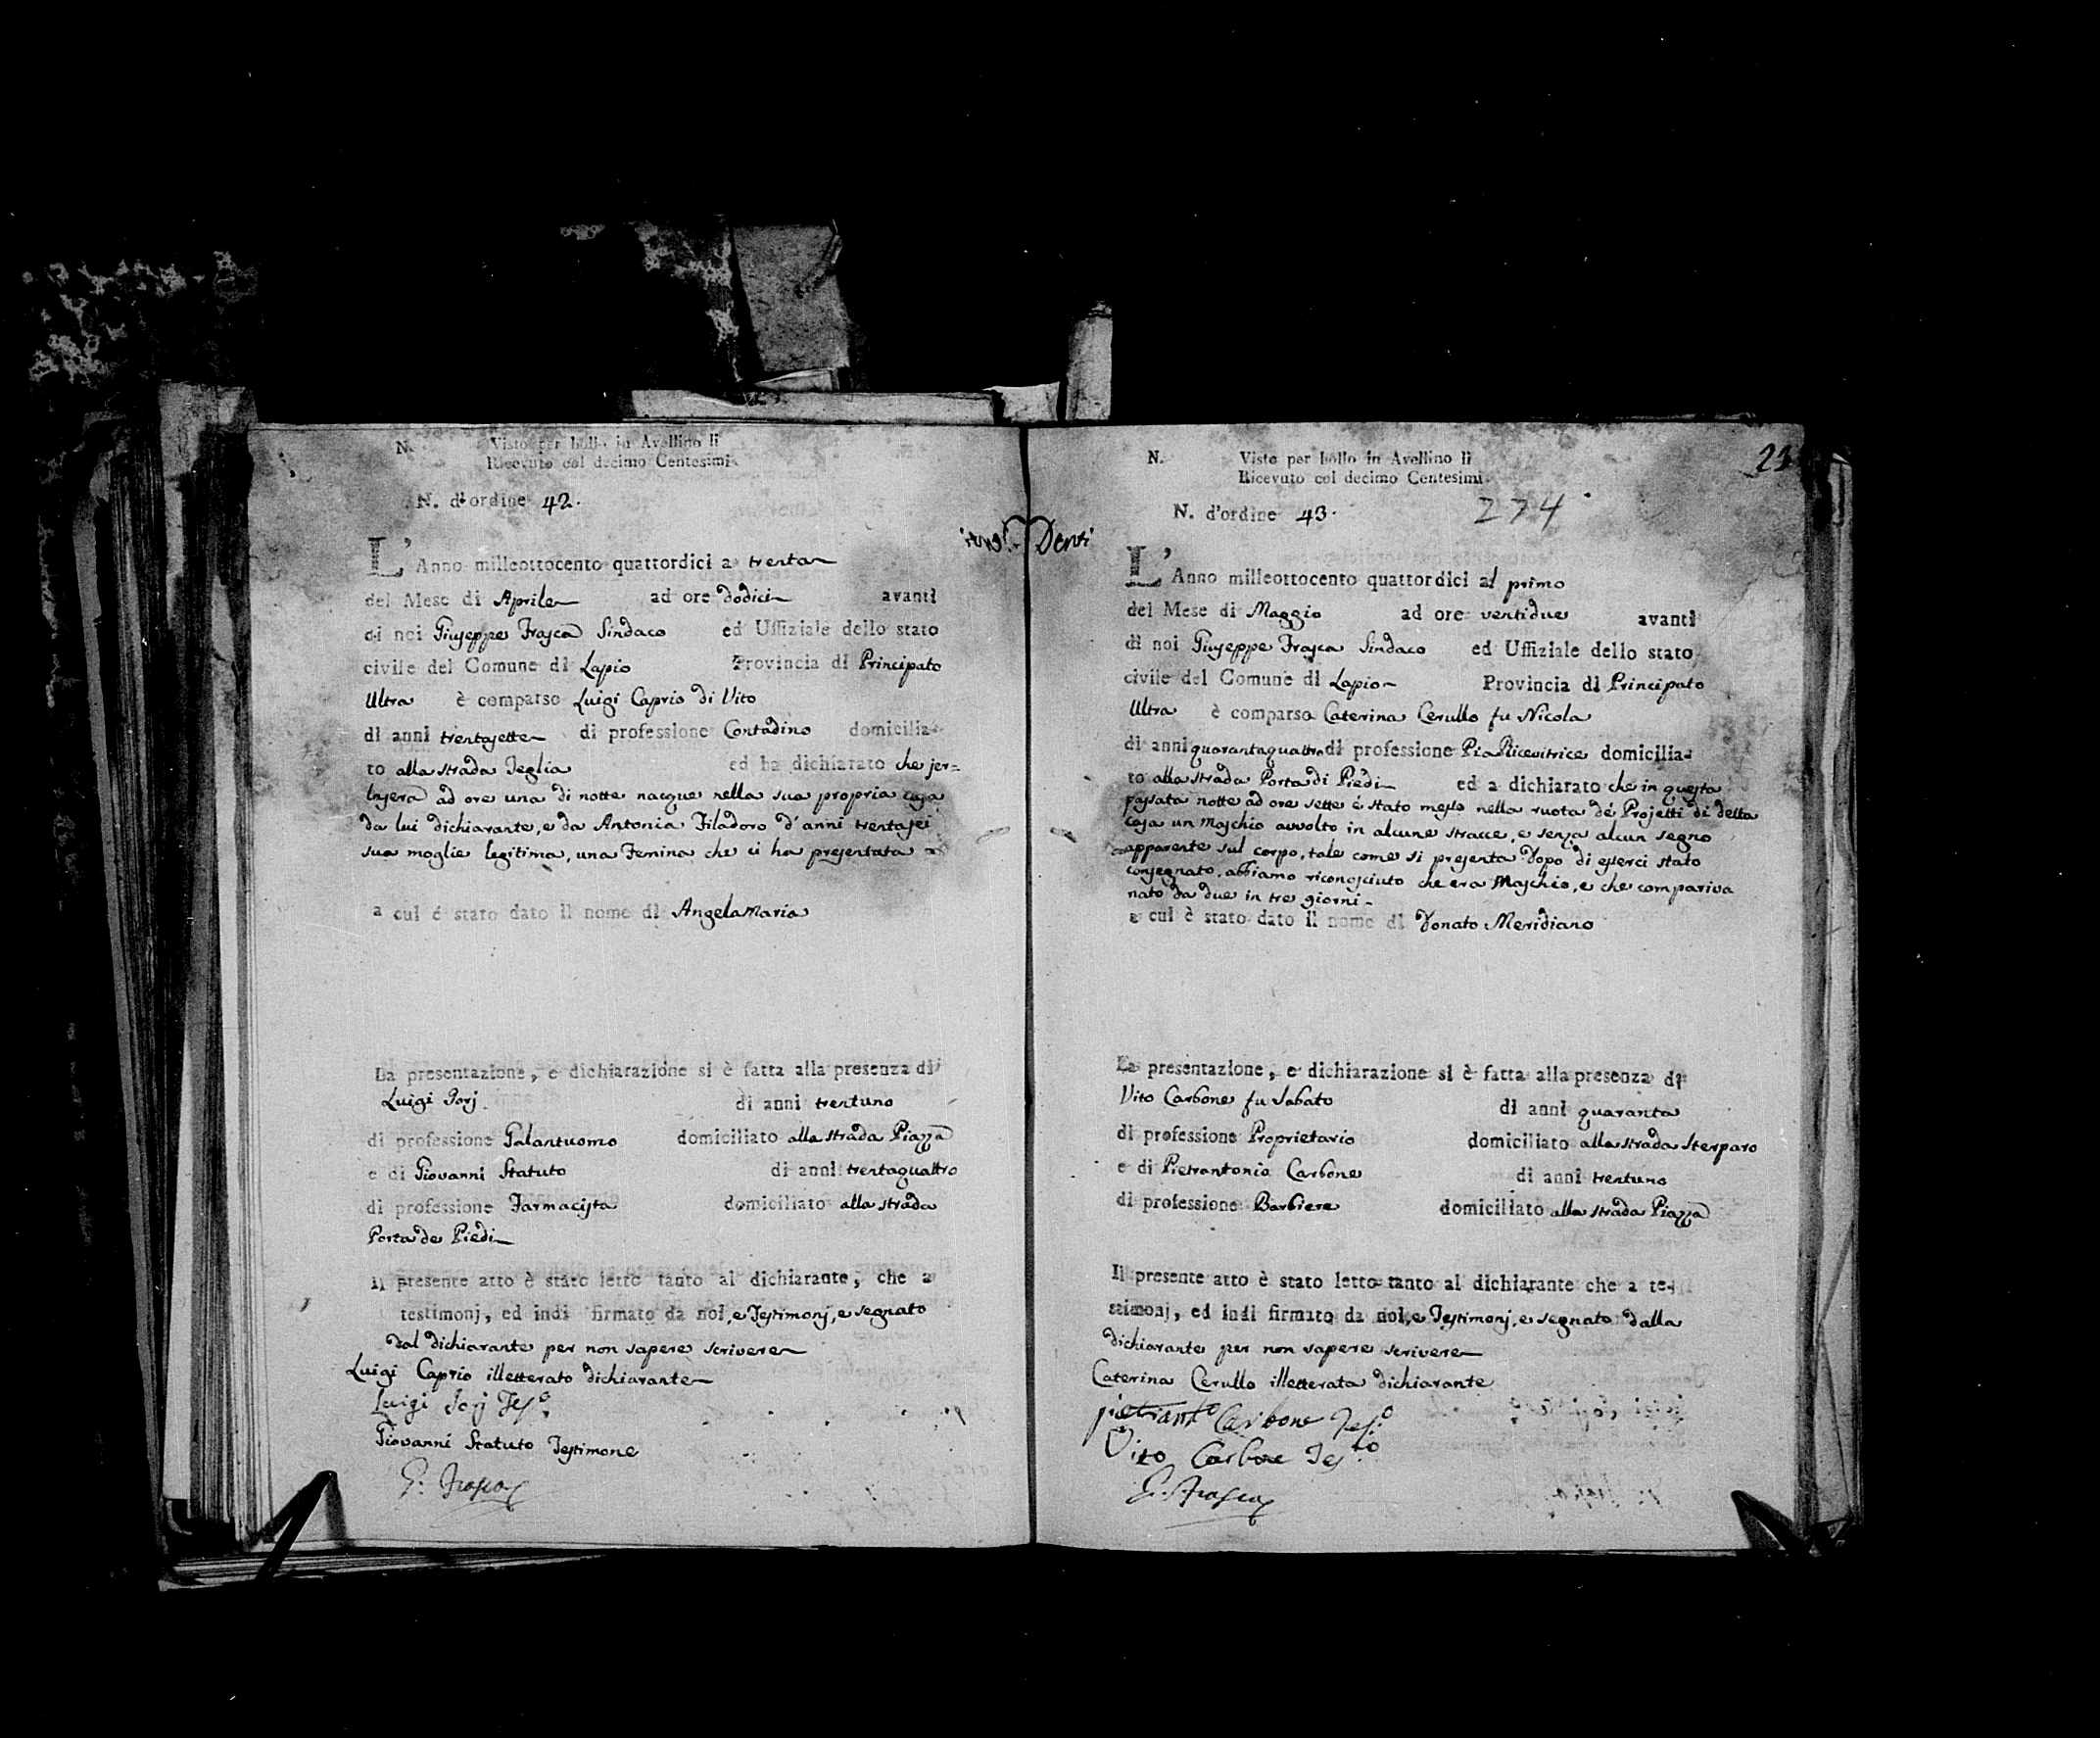 N. Visto per bollo in Avellino li
Ricevuto col decimo Centesimi
N. d'ordine 42.
L'Anno milleottocento quattordici a trenta
del Mese di Aprile ad ore dodici avanti
di noi Giuseppe Frasca Sindaco ed Uffiziale dello stato
civile del Comune di Lapio Provincia di Principato
Ultra è comparso Luigi Caprio di Vito
di anni trentasette di professione Contadino domicilia-
to alla strada Teglia ed ha dichiarato che jer=
lasera ad ore una di notte nacque nella sua propria casa
da lui dichiarante, e da Antonia Filadoro d'anni trentasei
sua moglie legitima, una Femina che ci ha presentata
a cui è stato dato il nome di Angelamaria
La presentazione, e dichiarazione si è fatta alla presenza di
Luigi Jorj di anni trentuno
di professione Galantuomo domiciliato alla strada Piazza
e di Giovanni Statuto di anni trentaquattro
di professione Farmacista domiciliato alla strada
Porta de Piedi
Il presente atto è stato letto tanto al dichiarante, che a
testimonj, ed indi firmato da noi, e Testimonj, e segnato
dal dichiarante per non sapere scrivere
Luigi Caprio illetterato dichiarante
Luigi Jorj Tes.o
Giovanni Statuto Testimone
G. Frasca
Denti
21
N. Visto per bollo in Avellino li
Ricevuto col decimo Centesimi
N. d'ordine 43. 274
L'Anno milleottocento quattordici al primo
del Mese di Maggio ad ore ventidue avanti
di noi Giuseppe Frasca Sindaco ed Uffiziale dello stato
civile del Comune di Lapio Provincia di Principato
Ultra è comparsa Caterina Cerullo fu Nicola
di anni quarantaquattro di professione Pia Ricevitrice domicilia-
to alla strada Porta di Piedi ed a dichiarato che in questa
passata notte ad ore sette é stato messo nella ruota dé Projetti di detta
casa un Maschio avvolto in alcune stracce, e senza alcun segno
apparente sul corpo, tale come si presenta. Dopo di esserci stato
consegnato, abbiamo riconosciuto che era Maschio, e che compariva
nato da due in tre giorni
a cui è stato dato il nome di Donato Meridiano
La presentazione, e dichiarazione si è fatta alla presenza di
Vito Carbone fu Sabato di anni quaranta
di professione Proprietario domiciliato alla strada Sterparo
e di Pietrantonio Carbone di anni trentuno
di professione Barbiere domiciliato alla strada Piazza
Il presente atto è stato letto tanto al dichiarante che a te-
stimonj, ed indi firmato da noi, e Testimonj, e segnato dalla
dichiarante per non sapere scrivere
Caterina Cerullo illetterata dichiarante
pietrant.o Carbone Tes.o
Vito Carbone Tes.to
G. Frasca